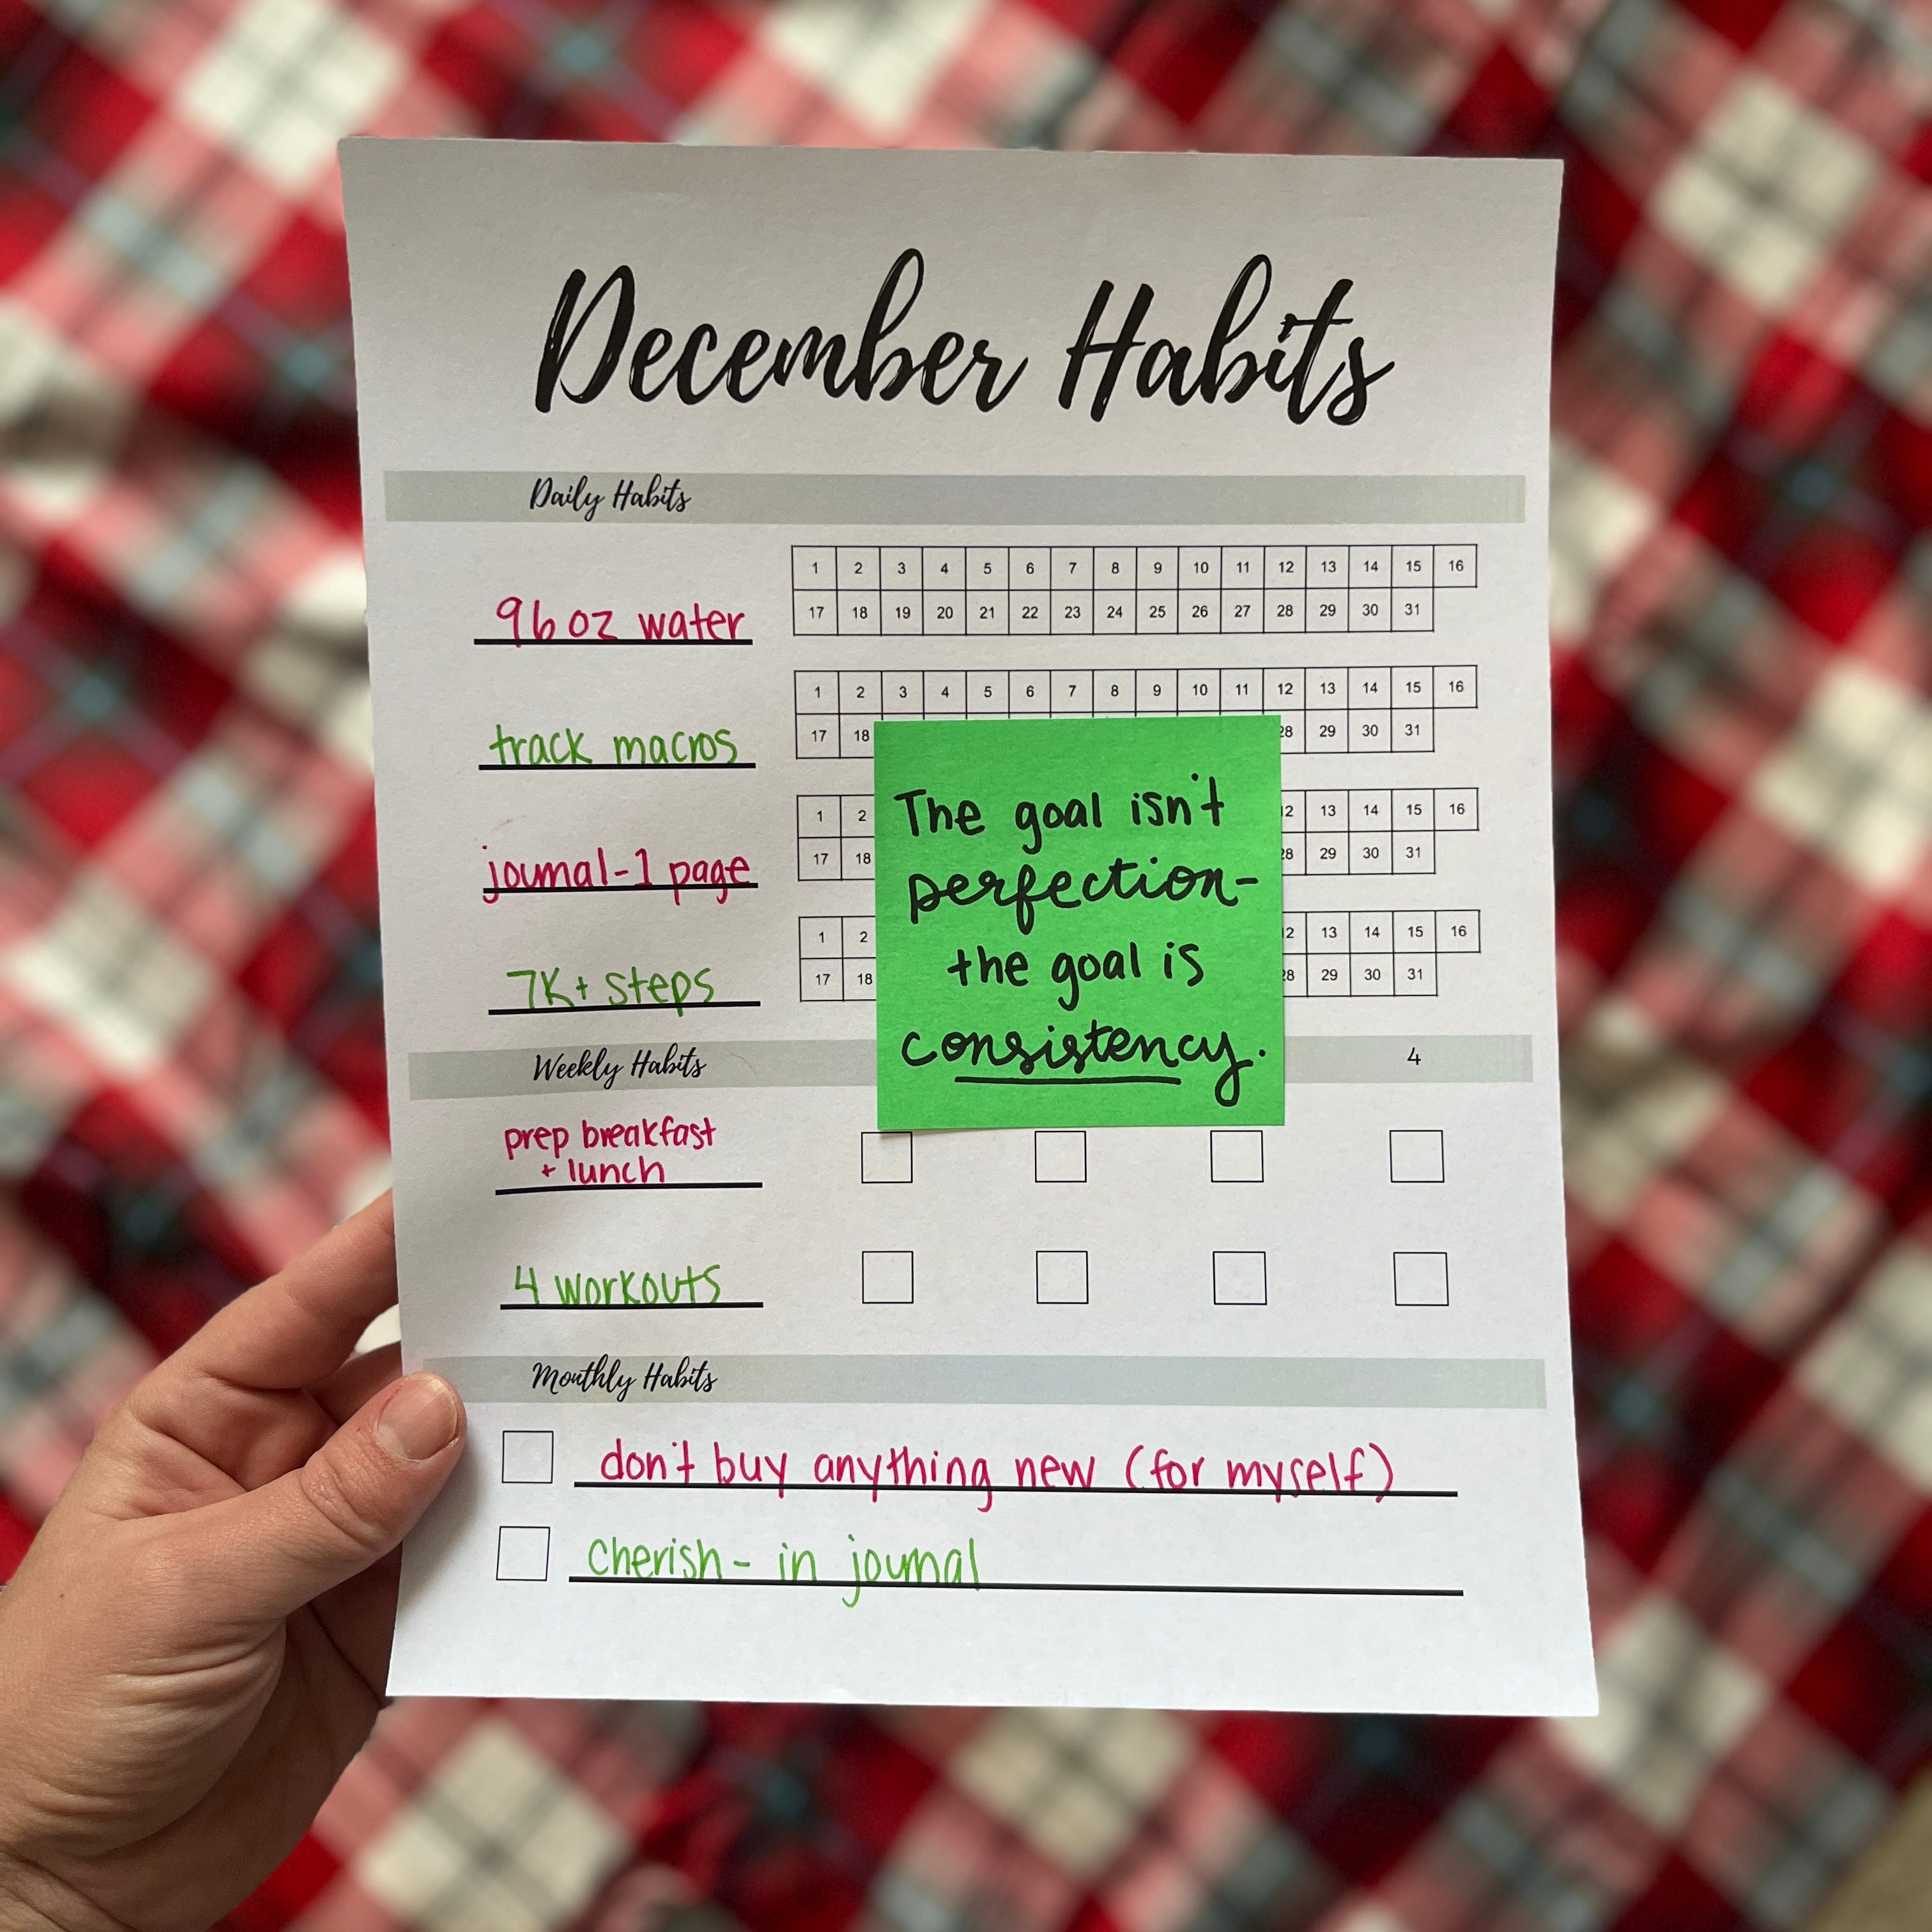 December Habits
Daily Habits
1 2 3 4 5 6 7 8 9 10 11 12 13 14 15 16
96 oz water
17 18 19 20 21 22 23 24 25 26 27 28 29 30 31
1 2 3 4 5 6 7 8 9 10 11 12 13 14 15 16
track macros
17 18 28 29 30 31
1 2 12 13 14 15 16
journal-1 page
17 18 28 29 30 31
1 2 12 13 14 15 16
7K+ steps
17 18 28 29 30 31
The goal isn't
perfection-
the goal is
consistency.
Weekly Habits 4
prep breakfast
+ lunch
4 workouts
Monthly Habits
don't buy anything new (for myself)
cherish - in journal